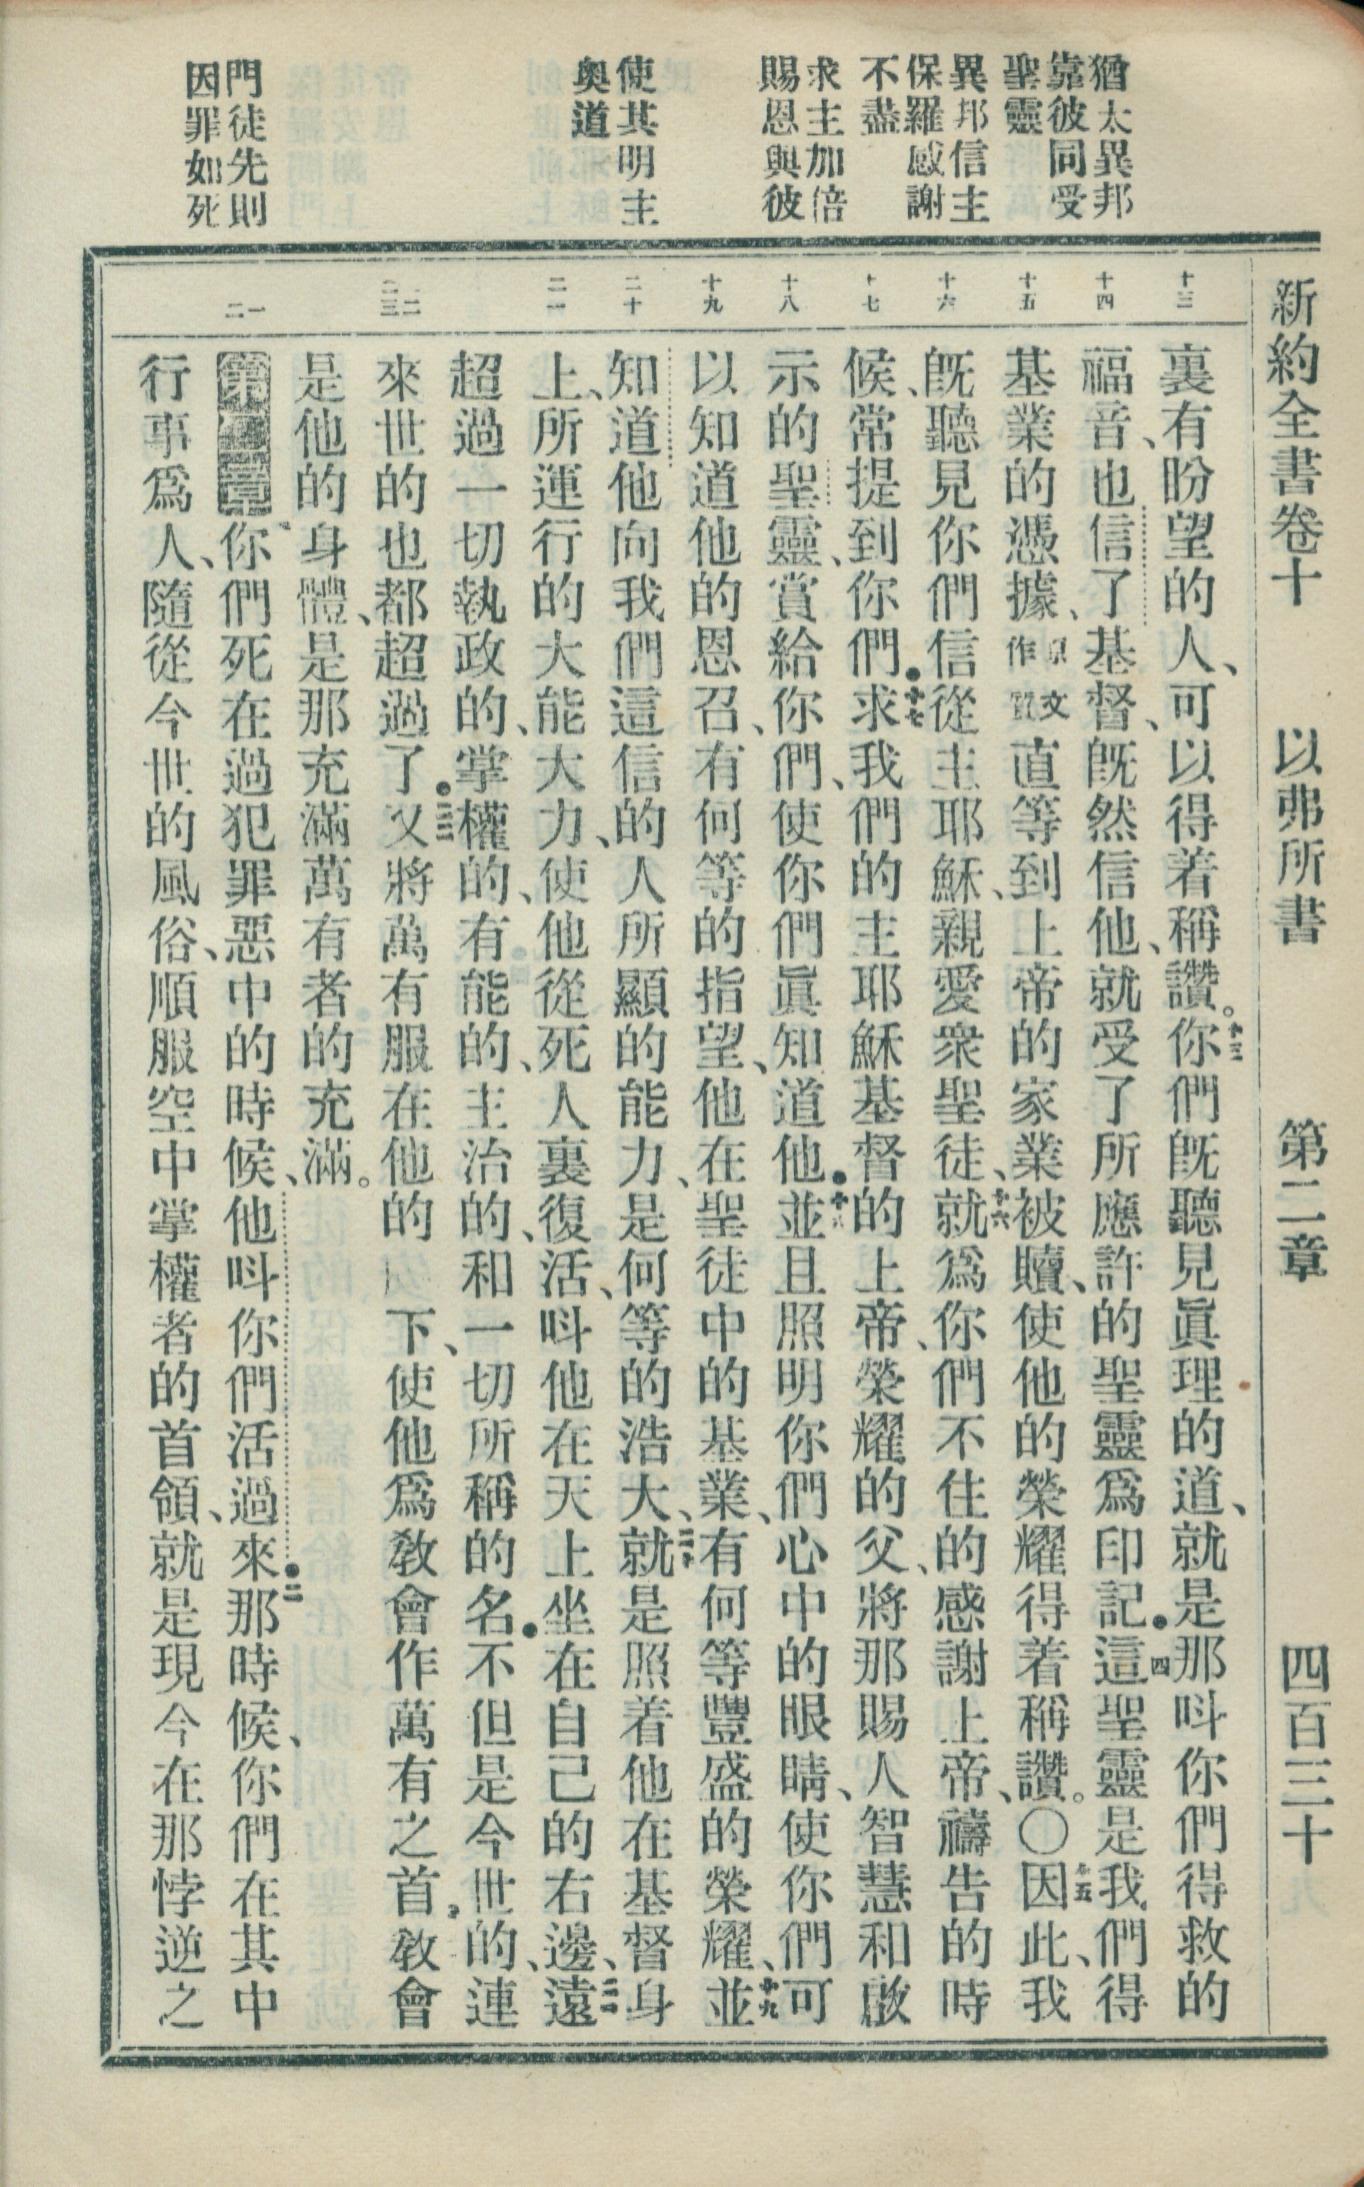 新約全書卷十 以弗所書 第二章 四百三十
猶太異邦
靠彼同受
聖靈
異邦信主
保羅感謝
不盡
求主加倍
賜恩與彼
使其明主
奧道
門徒先則
因罪如死
十三
十四
十五
十六
十七
十八
十九
二十
二一
二二
二三
一
二
裏有盼望的人、可以得着稱讚。十三你們旣聽見眞理的道、就是那呌你們得救的
福音、也信了基督、旣然信他、就受了所應許的聖靈爲印記●四這聖靈是我們得
基業的憑據、原文作質直等到上帝的家業被贖、使他的榮耀得着稱讚。〇十五因此、我
旣聽見你們信從主耶穌、親愛衆聖徒、十六就爲你們不住的感謝上帝、禱告的時
候、常提到你們●十七求我們的主耶穌基督的上帝、榮耀的父、將那賜人智慧和啟
示的聖靈、賞給你們、使你們眞知道他●十八並且照明你們心中的眼睛、使你們可
以知道他的恩召、有何等的指望、他在聖徒中的基業、有何等豐盛的榮耀、十九並
知道他向我們這信的人所顯的能力、是何等的浩大、二十就是照着他在基督身
上、所運行的大能大力、使他從死人裏復活、呌他在天上坐在自己的右邊、二一遠
超過一切執政的、掌權的、有能的、主治的、和一切所稱的名●不但是今世的、連
來世的也都超過了●二二又將萬有服在他的 下、使他爲教會作萬有之首●教會
是他的身體、是那充滿萬有者的充滿。
第二章你們死在過犯罪惡中的時候、他呌你們活過來●二那時候、你們在其中
行事爲人、隨從今世的風俗、順服空中掌權者的首領、就是現今在那悖逆之